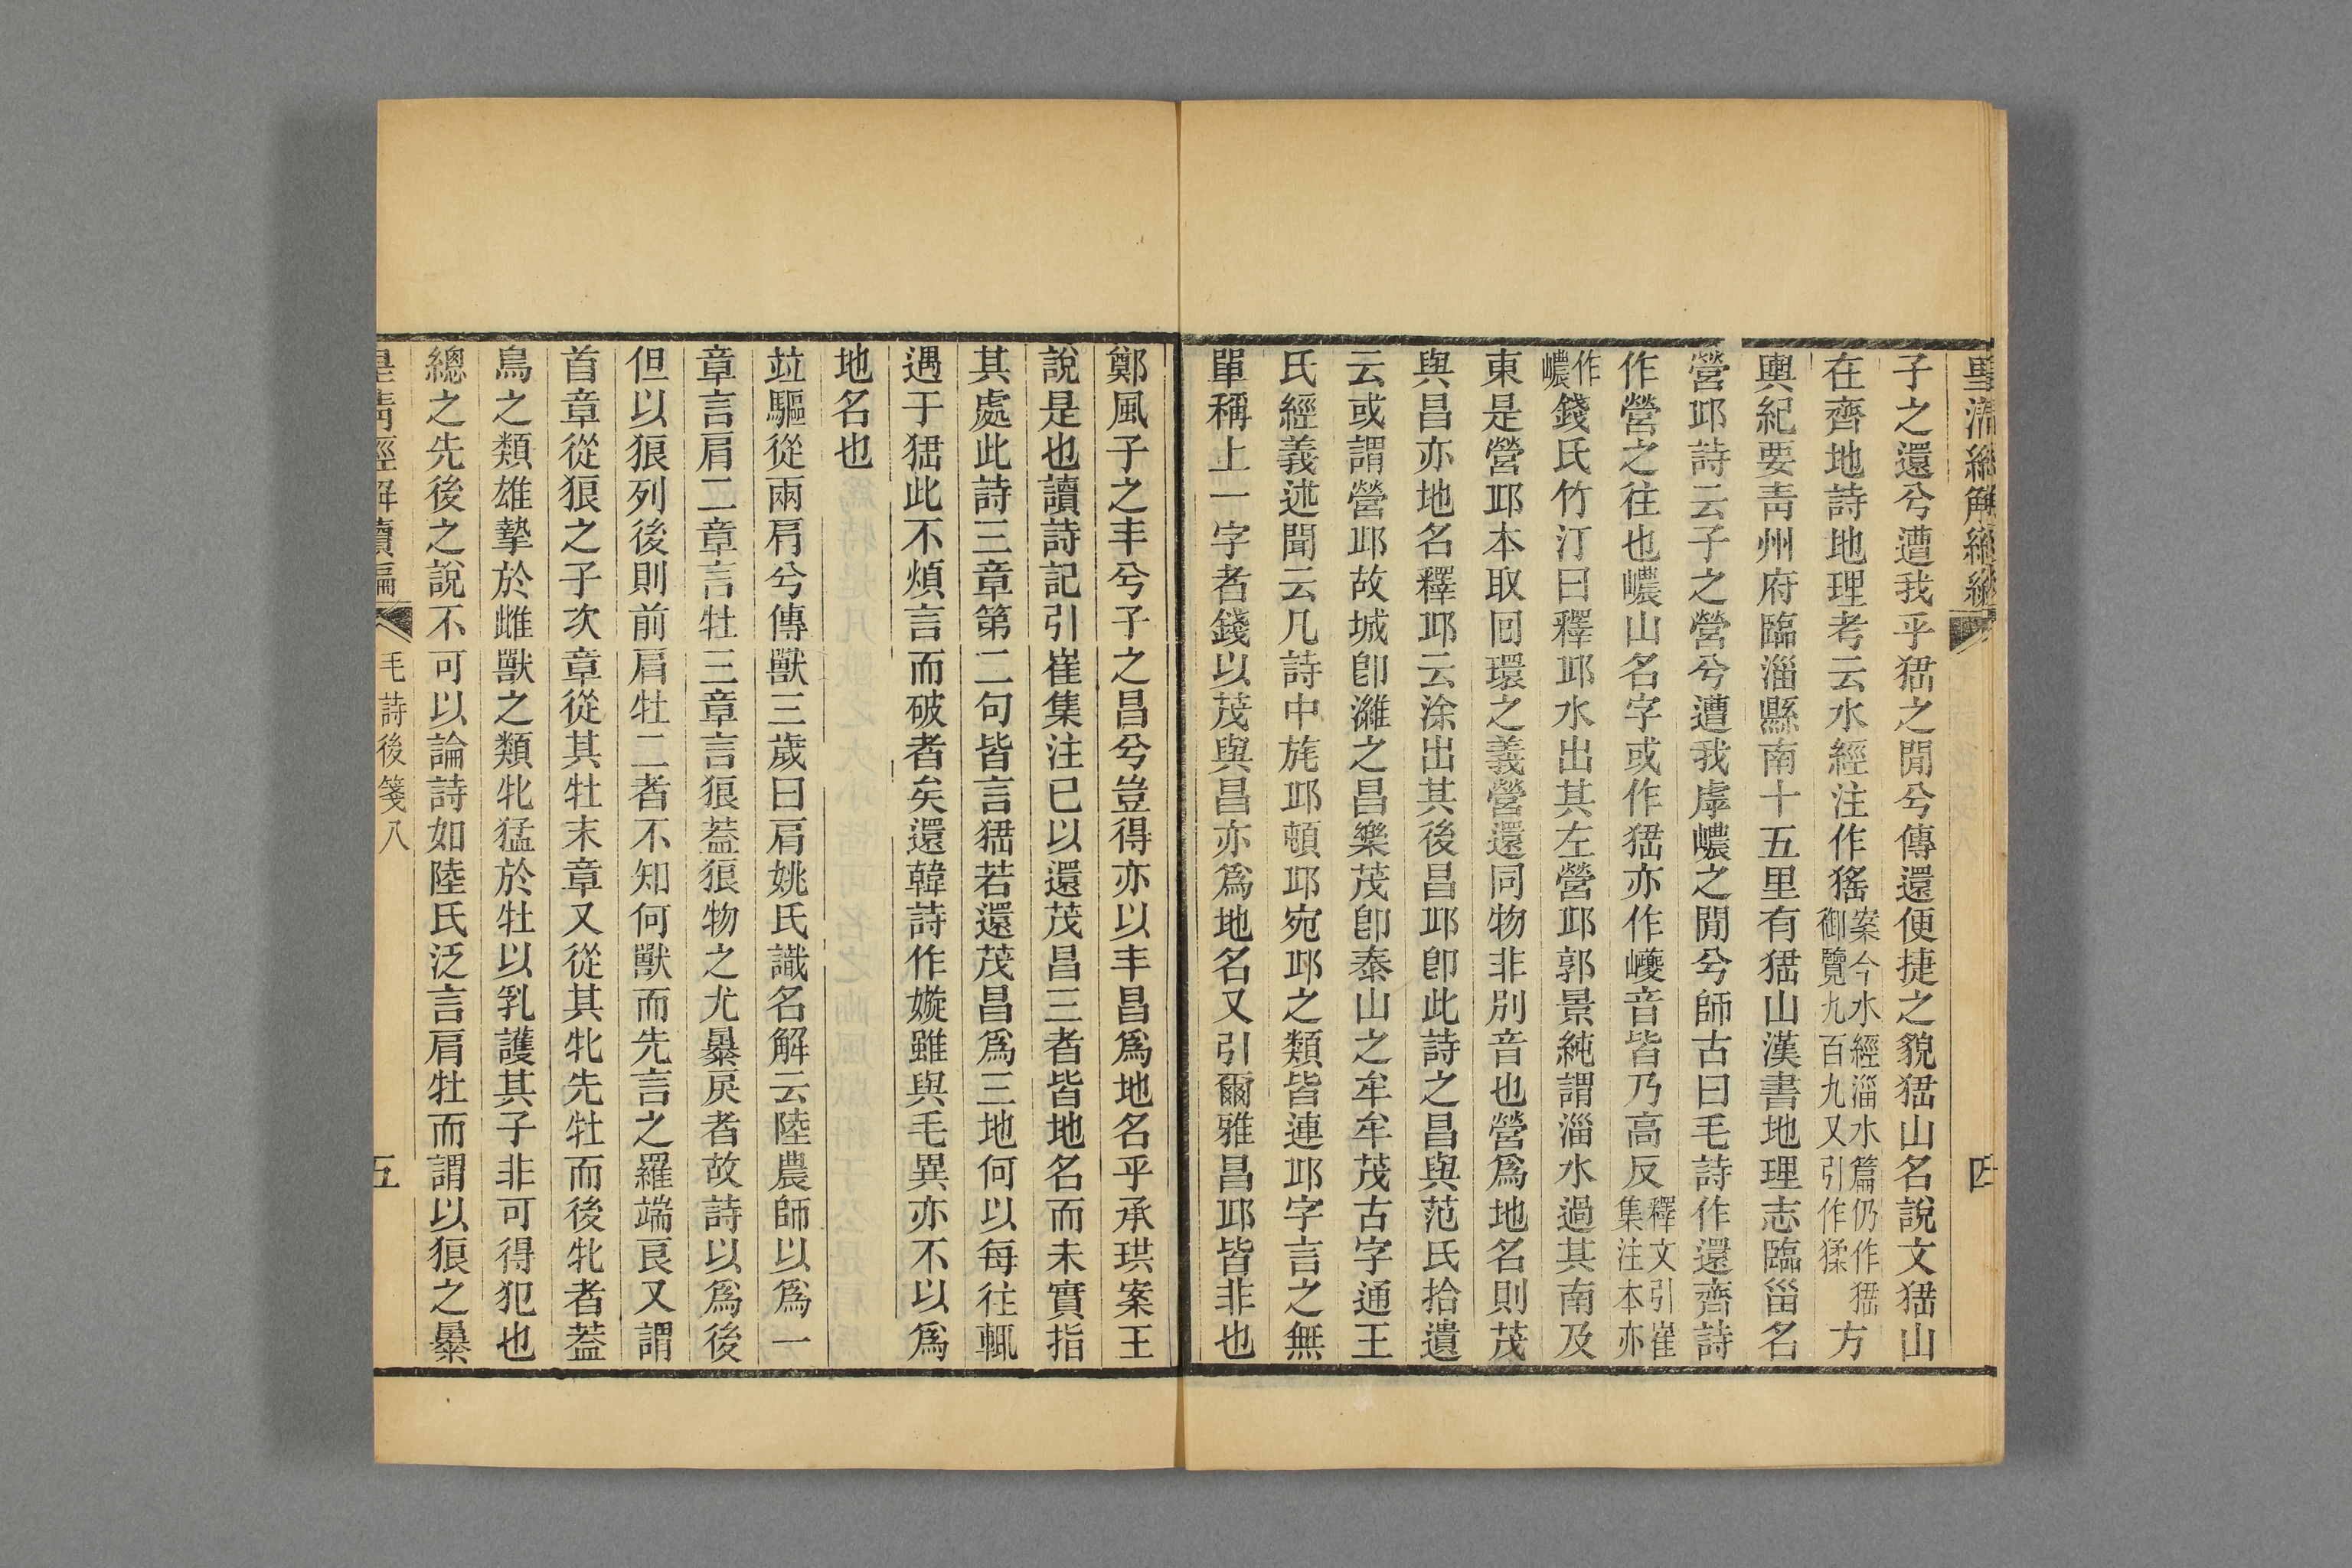 子之還兮遭我乎猺之閒兮傳還便捷之貌猺山名說文猺山
在齊地詩地理考云水經注作猺案今水經淄水篇仍作猺御覽九百九又引作猱方
輿紀要靑州府臨淄縣南十五里有猺山漢書地理志臨甾名
營邱詩云子之營兮遭我虖嶩之閒兮師古曰毛詩作還齊詩
作營之往也嶩山名字或作猺亦作巎音皆乃高反釋文引崔集注本亦
作嶩錢氏竹汀曰釋邱水出其左營邱郭景純謂淄水過其南及
東是營邱本取回環之義營還同物非別音也營爲地名則茂
與昌亦地名釋邱云涂出其後昌邱卽此詩之昌與范氏拾遺
云或謂營邱故城卽濰之昌樂茂卽泰山之牟牟茂古字通王
氏經義述聞云凡詩中旄邱頓邱宛邱之類皆連邱字言之無
單稱上一字者錢以茂與昌亦爲地名又引爾雅昌邱皆非也
鄭風子之丰兮子之昌兮豈得亦以丰昌爲地名乎承珙案王
說是也讀詩記引崔集注已以還茂昌三者皆地名而未實指
其處此詩三章第二句皆言猺若還茂昌爲三地何以每往輒
遇于猺此不煩言而破者矣還韓詩作嫙雖與毛異亦不以爲
地名也
竝驅從兩肩兮傳獸三歲曰肩姚氏識名解云陸農師以爲一
章言肩二章言牡三章言狼葢狼物之尤暴戾者故詩以爲後
但以狼列後則前肩牡二者不知何獸而先言之羅端良又謂
首章從狼之子次章從其牡末章又從其牝先牡而後牝者葢
鳥之類雄摯於雌獸之類牝猛於牡以乳護其子非可得犯也
總之先後之說不可以論詩如陸氏泛言肩牡而謂以狼之暴
毛詩後箋八
五